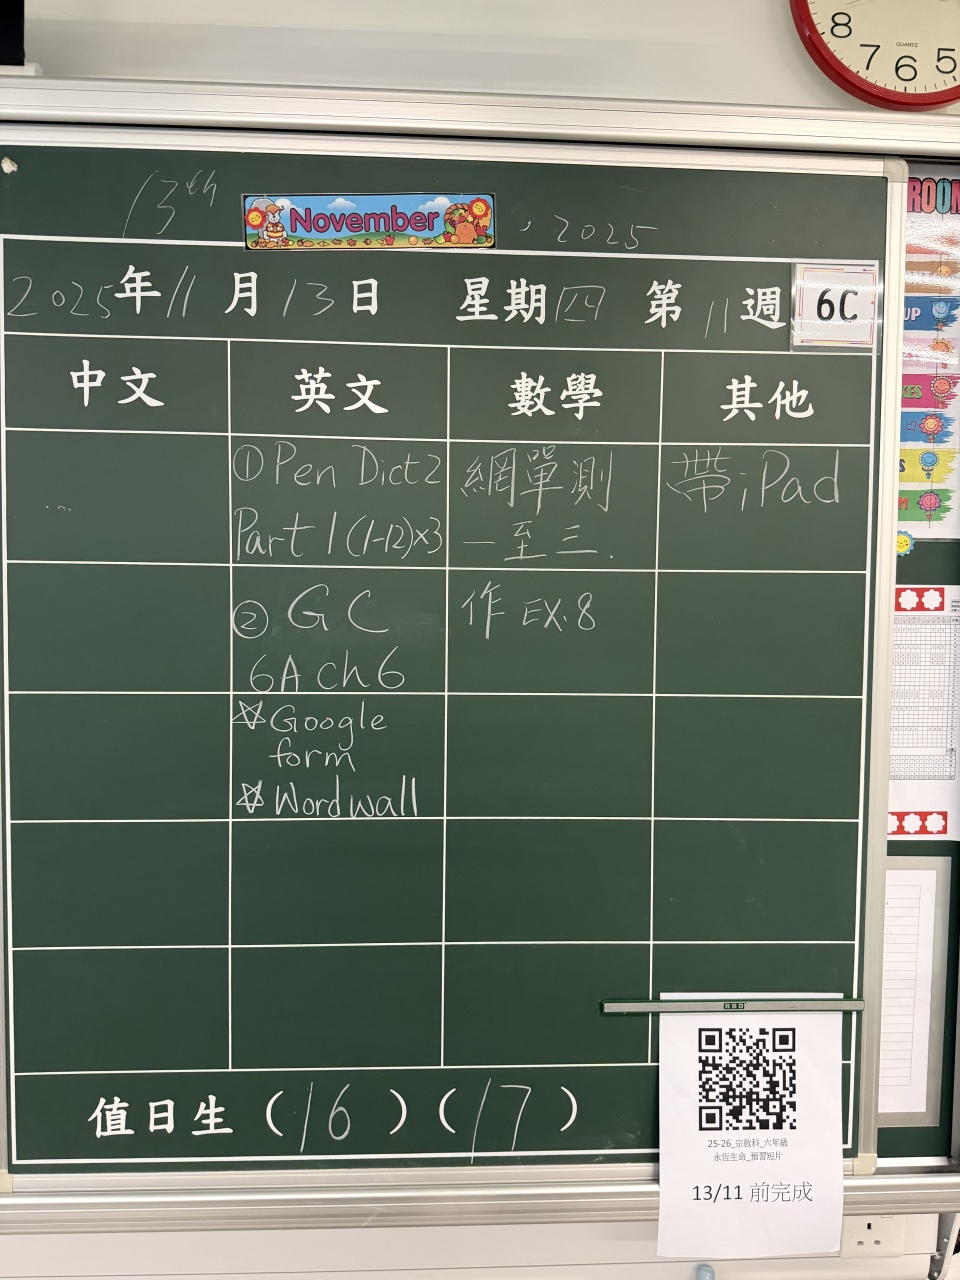 8 7 6 5
QUARTZ
13th November , 2025
2025年11月13日 星期四 第11週 6C
中文 英文 數學 其他
① Pen Dict 2
Part 1 (1-12)×3
網單測
一至三.
帶iPad
② GC
6A ch6
作 EX.8
☆ Google
form
☆ Wordwall
值日生 (16) (17)
25-26_宗教科_六年級
永恆生命_預習短片
13/11 前完成
ROOM
UP
KES